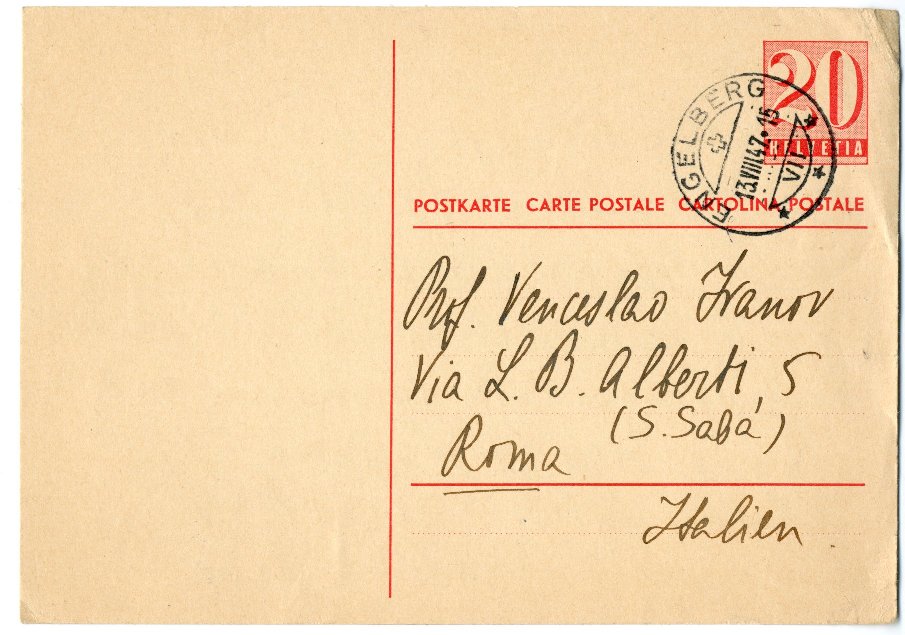 20
HELVETIA
ENGELBERG
13.VIII.47.15
VII
POSTKARTE CARTE POSTALE CARTOLINA POSTALE
Prof. Venceslao Ivanov
Via L. B. Alberti, 5
(S. Sabá)
Roma
Italien.